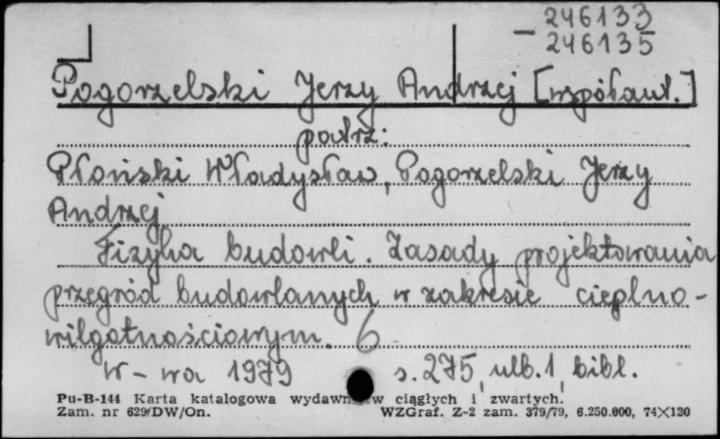 – 246133
246135
Pogorzelski Jerzy Andrzej [współaut.]
patrz:
Płoński Władysław, Pogorzelski Jerzy
Andrzej
Fizyka budowli. Zasady projektowania
przegród budowlanych w zakresie cieplno-
wilgotnościowym. 6
W-wa 1979 s. 275, ulb. 1, bibl.
Pu-B-144 Karta katalogowa wydawn w ciągłych i zwartych.
Zam. nr 629/DW/On. WZGraf. Z-2 zam. 379/79, 6.250.000, 74×120